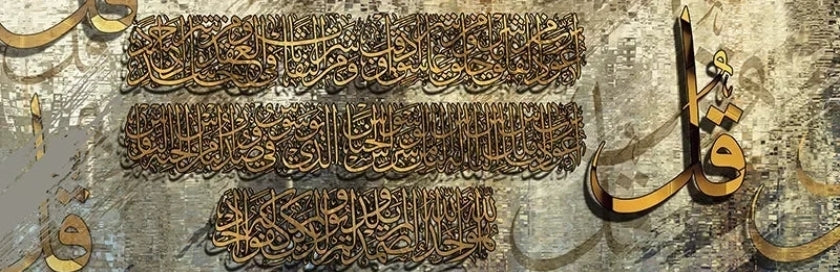 قُلْ
أعوذ برب الفلق من شر ما خلق ومن شر غاسق إذا وقب ومن شر النفاثات في العقد ومن شر حاسد إذا حسد
أعوذ برب الناس ملك الناس إله الناس من شر الوسواس الخناس الذي يوسوس في صدور الناس من الجنة والناس
هو الله أحد الله الصمد لم يلد ولم يولد ولم يكن له كفوا أحد